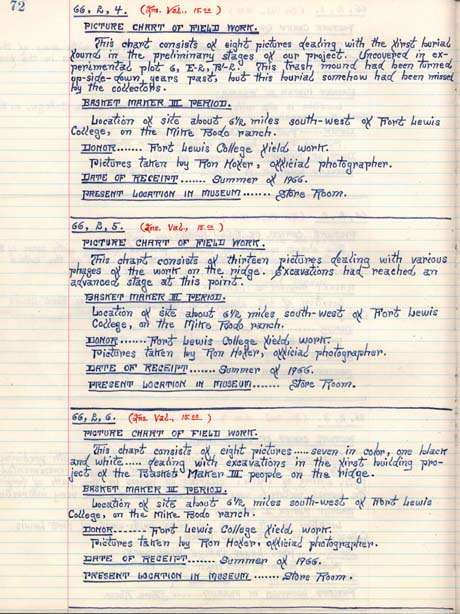 72
66, 2, 4. (Ins. Val., 15.00)
PICTURE CHART OF FIELD WORK.
This chart consists of eight pictures dealing with the first burial
found in the preliminary stages of our project. Uncovered in ex-
perimental plot 6, E-2, B'-2'. This trash mound had been turned
up-side-down, years past, but this burial somehow had been missed
by the collectors.
BASKET MAKER III PERIOD.
Location of site about 6½ miles south-west of Fort Lewis
College, on the Mike Bodo ranch.
DONOR...... Fort Lewis College field work.
Pictures taken by Ron Hofer, official photographer.
DATE OF RECEIPT....... Summer of 1966.
PRESENT LOCATION IN MUSEUM....... Store Room.
66, 2, 5. (Ins. Val., 15.00)
PICTURE CHART OF FIELD WORK.
This chart consists of thirteen pictures dealing with various
phages of the work on the ridge. Excavations had reached an
advanced stage at this point.
BASKET MAKER III PERIOD.
Location of site about 6½ miles south-west of Fort Lewis
College, on the Mike Bodo ranch.
DONOR....... Fort Lewis College field work.
Pictures taken by Ron Hofer, official photographer.
DATE OF RECEIPT....... Summer of 1966.
PRESENT LOCATION IN MUSEUM....... Store Room.
66, 2, 6. (Ins. Val., 15.00)
PICTURE CHART OF FIELD WORK.
This chart consists of eight pictures.... seven in color, one black
and white.... dealing with excavations in the first building pro-
ject of the Basket Maker III people on the ridge.
BASKET MAKER III PERIOD.
Location of site about 6½ miles south-west of Fort Lewis
College, on the Mike Bodo ranch.
DONOR........ Fort Lewis College field work.
Pictures taken by Ron Hofer, official photographer.
DATE OF RECEIPT....... Summer of 1966.
PRESENT LOCATION IN MUSEUM....... Store Room.